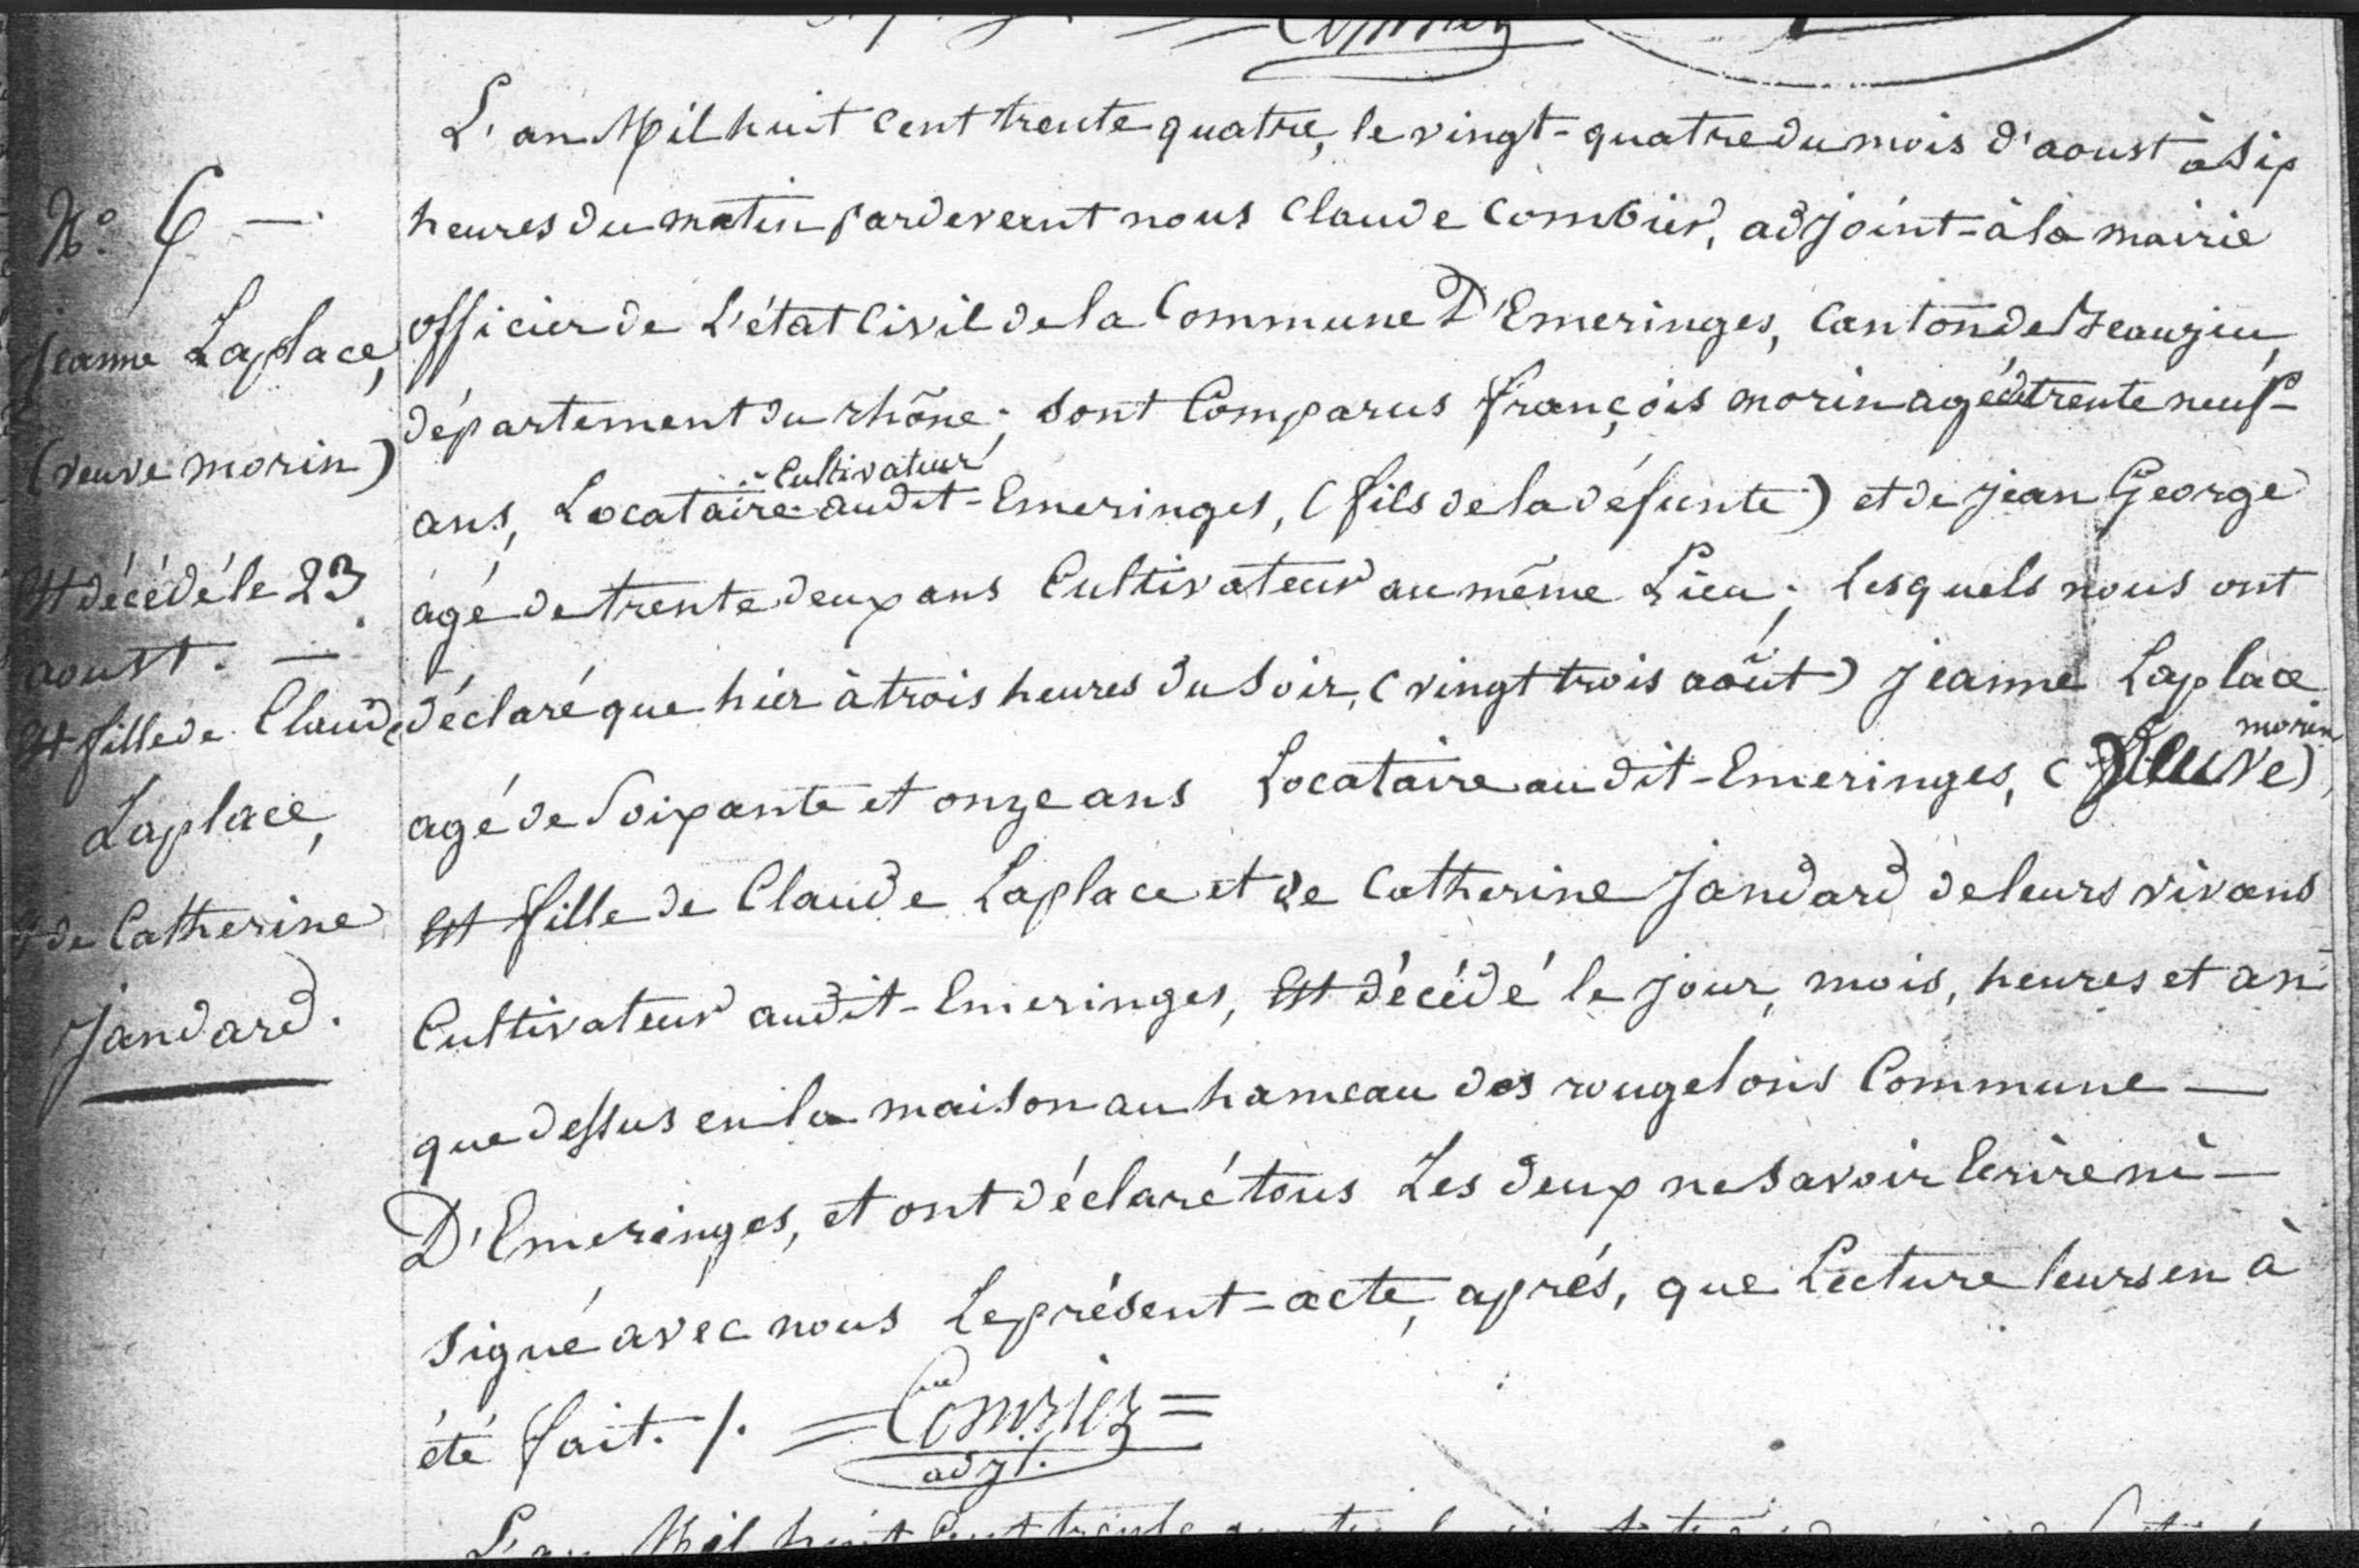 N.° 6 —
jeanne Laplace,
(veuve morin)
Est décédé le 23
aoust. —
Est fille de Claude
Laplace,
et de Catherine
Jandard.
L'an Mil huit Cent trente quatre, le vingt-quatre du mois d'aoust à Six
heures du matin pardevent nous Claude Combier, adjoint-à la mairie
officier de L'état Civil de la Commune D'Emeringes, Canton de Beaujeu,
département du rhône; sont Comparus françois morin agé de trente neuf-
Cultivateur
ans, Locataire audit-Emeringes, (fils de la défunte) et de jean George
âgé de trente deux ans Cultivateur au même Lieu; lesquels nous ont
déclaré que hier à trois heures du Soir, (vingt trois août) jeanne Laplace
morin
agé de Soixante et onze ans Locataire audit-Emeringes, (veuve),
Est fille de Claude Laplace et de Catherine Jandard de leurs vivans
Cultivateur audit-Emeringes, Est décédé le jour, mois, heures et an
que dessus en la maison au hameau des rougelons Commune —
D'Emeringes, et ont déclaré tous Les deux ne Savoir Ecrire ni —
signé avec nous Le présent-acte, aprés, que Lecture leurs en à
été fait. /. = Combier =
adjt.
L'an Mil huit Cent trente